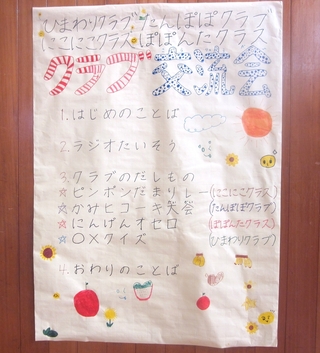 ひまわりクラブ たんぽぽクラブ
にこにこクラス ぽぽんたクラス
クラブ交流会
1.はじめのことば
2.ラジオたいそう
3.クラブのだしもの
☆ピンポンだまリレー(にこにこクラス)
☆かみヒコーキ大会(たんぽぽクラブ)
☆にんげんオセロ(ぽぽんたクラス)
☆〇×クイズ(ひまわりクラブ)
4.おわりのことば